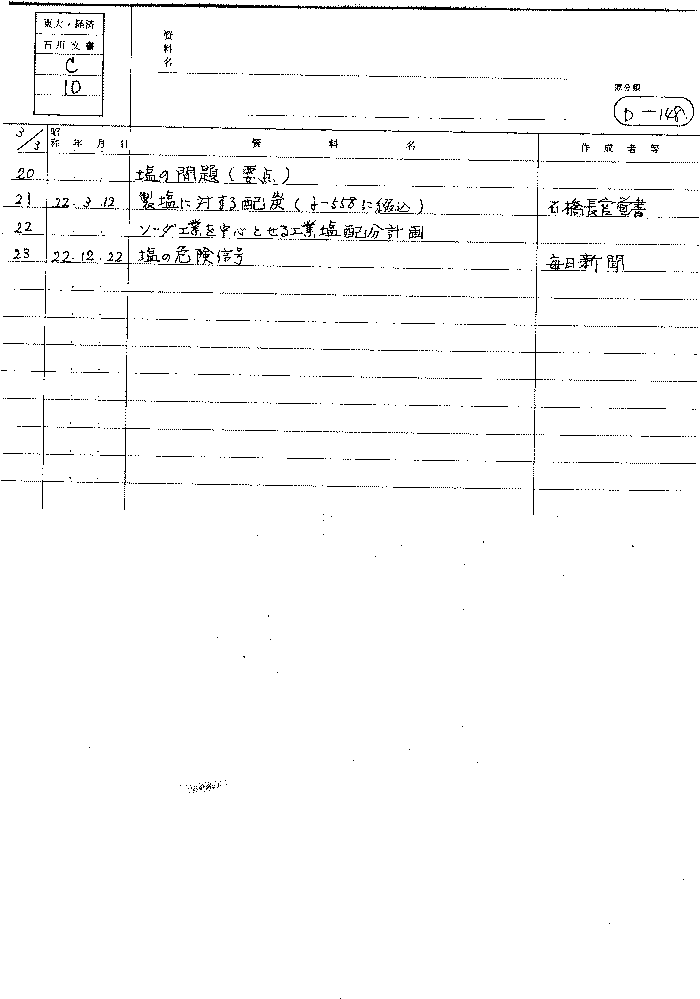 東大・経済
石川文書
C
10
資料名
原分類
D-148
3/3 昭和 年 月 日 資料名 作成者等
20 塩の問題(要点)
21 22.3.12 製塩に対する配炭( -558に綴込) 石橋長官覚書
22 ソーダ工業を中心とせる工業塩配分計画
23 22.12.22 塩の危険信号 毎日新聞